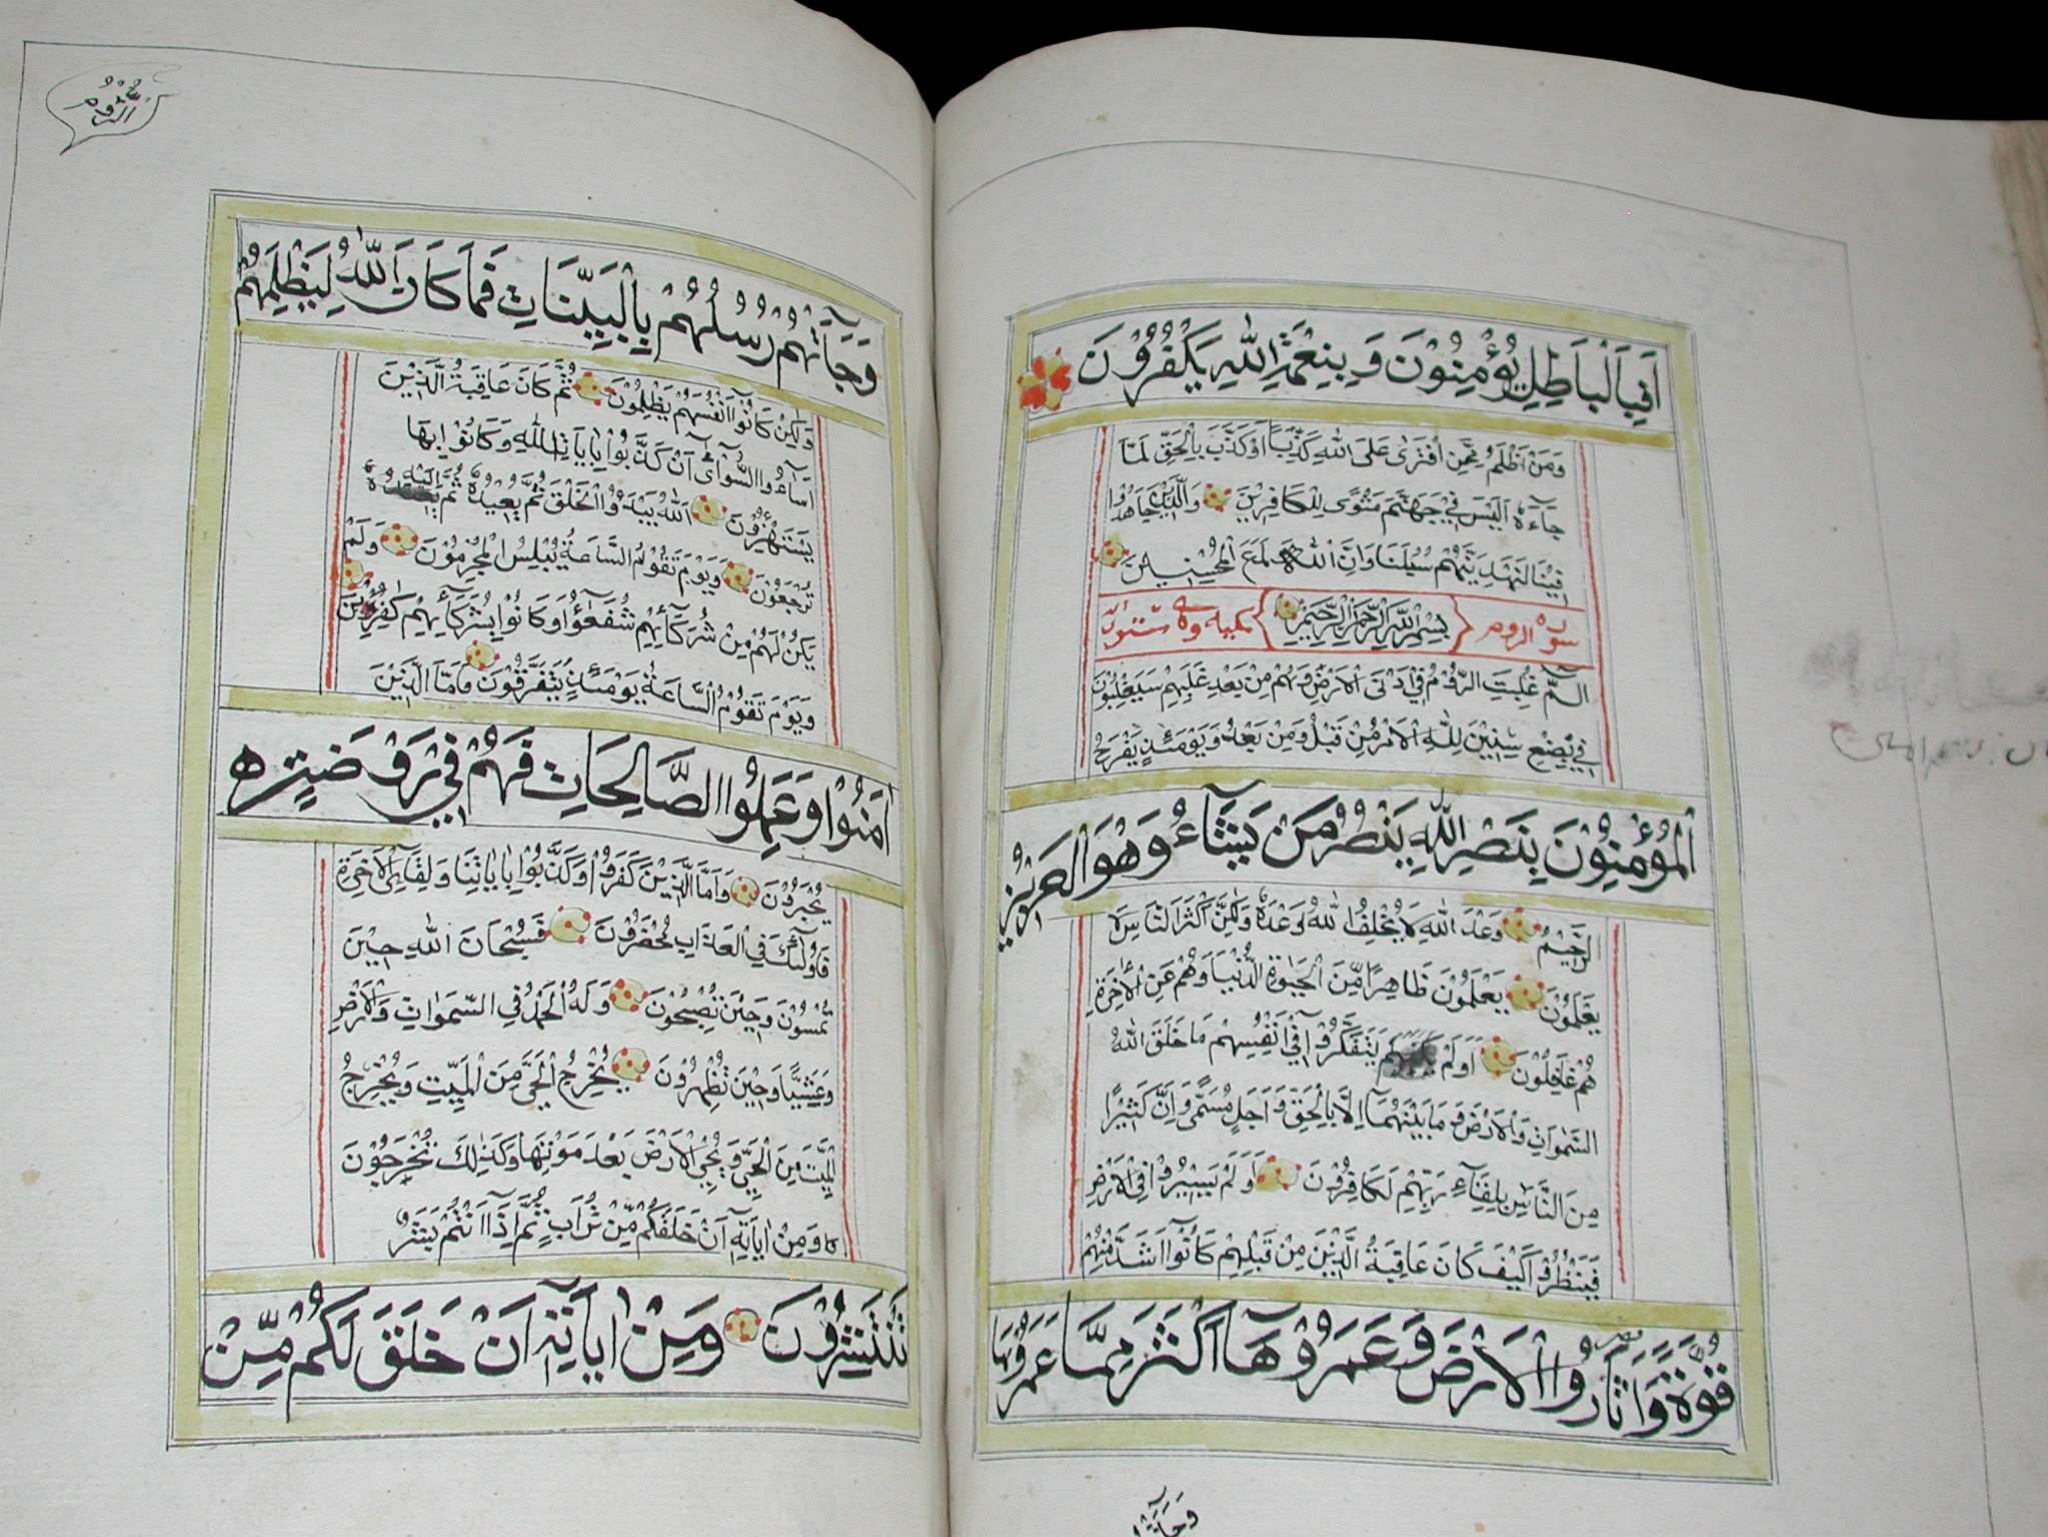 اَفَبِالْبَاطِلِ يُؤْمِنُوْنَ وَبِنِعْمَةِ اللّٰهِ يَكْفُرُوْنَ
وَمَنْ اَظْلَمُ مِمَّنِ افْتَرٰى عَلَى اللّٰهِ كَذِبًا اَوْكَذَّبَ بِالْحَقِّ لَمَّا
جَآءَهٗ اَلَيْسَ فِيْ جَهَنَّمَ مَثْوًى لِلْكَافِرِيْنَ وَالَّذِيْنَ جَاهَدُوْا
فِيْنَا لَنَهْدِيَنَّهُمْ سُبُلَنَا وَاِنَّ اللّٰهَ لَمَعَ الْمُحْسِنِيْنَ
سورة الروم بِسْمِ اللّٰهِ الرَّحْمٰنِ الرَّحِيْمِ مكية وهي ستون اية
الٓمّٓ غُلِبَتِ الرُّوْمُ فِيْ اَدْنَى الْاَرْضِ وَهُمْ مِنْ بَعْدِ غَلَبِهِمْ سَيَغْلِبُوْنَ
فِيْ بِضْعِ سِنِيْنَ لِلّٰهِ الْاَمْرُ مِنْ قَبْلُ وَمِنْ بَعْدُ وَيَوْمَئِذٍ يَفْرَحُ
الْمُؤْمِنُوْنَ بِنَصْرِ اللّٰهِ يَنْصُرُ مَنْ يَشَآءُ وَهُوَ الْعَزِيْزُ
الرَّحِيْمُ وَعْدَ اللّٰهِ لَا يُخْلِفُ اللّٰهُ وَعْدَهٗ وَلٰكِنَّ اَكْثَرَ النَّاسِ لَا
يَعْلَمُوْنَ يَعْلَمُوْنَ ظَاهِرًا مِّنَ الْحَيٰوةِ الدُّنْيَا وَهُمْ عَنِ الْاٰخِرَةِ
هُمْ غَافِلُوْنَ اَوَلَمْ يَتَفَكَّرُوْا فِيْٓ اَنْفُسِهِمْ مَا خَلَقَ اللّٰهُ
السَّمٰوَاتِ وَالْاَرْضَ وَمَا بَيْنَهُمَآ اِلَّا بِالْحَقِّ وَاَجَلٍ مُّسَمًّى وَاِنَّ كَثِيْرًا
مِنَ النَّاسِ بِلِقَآءِ رَبِّهِمْ لَكَافِرُوْنَ اَوَلَمْ يَسِيْرُوْا فِي الْاَرْضِ
فَيَنْظُرُوْا كَيْفَ كَانَ عَاقِبَةُ الَّذِيْنَ مِنْ قَبْلِهِمْ كَانُوْٓا اَشَدَّ مِنْهُمْ
قُوَّةً وَّاَثَارُوا الْاَرْضَ وَعَمَرُوْهَآ اَكْثَرَ مِمَّا عَمَرُوْهَا
وَجَآءَتْ
الرُّوْم
وَجَآءَتْهُمْ رُسُلُهُمْ بِالْبَيِّنَاتِ فَمَا كَانَ اللّٰهُ لِيَظْلِمَهُمْ
وَلٰكِنْ كَانُوْٓا اَنْفُسَهُمْ يَظْلِمُوْنَ ثُمَّ كَانَ عَاقِبَةُ الَّذِيْنَ
اَسَآءُوا السُّوْٓاٰى اَنْ كَذَّبُوْا بِاٰيَاتِ اللّٰهِ وَكَانُوْا بِهَا
يَسْتَهْزِؤُنَ اَللّٰهُ يَبْدَؤُا الْخَلْقَ ثُمَّ يُعِيْدُهٗ ثُمَّ اِلَيْهِ
تُرْجَعُوْنَ وَيَوْمَ تَقُوْمُ السَّاعَةُ يُبْلِسُ الْمُجْرِمُوْنَ وَلَمْ
يَكُنْ لَهُمْ مِنْ شُرَكَآئِهِمْ شُفَعٰٓؤُا وَكَانُوْا بِشُرَكَآئِهِمْ كٰفِرِيْنَ
وَيَوْمَ تَقُوْمُ السَّاعَةُ يَوْمَئِذٍ يَتَفَرَّقُوْنَ فَاَمَّا الَّذِيْنَ
اٰمَنُوْا وَعَمِلُوا الصَّالِحَاتِ فَهُمْ فِيْ رَوْضَةٍ
يُحْبَرُوْنَ وَاَمَّا الَّذِيْنَ كَفَرُوْا وَكَذَّبُوْا بِاٰيَاتِنَا وَلِقَآئِ الْاٰخِرَةِ
فَاُولٰٓئِكَ فِي الْعَذَابِ مُحْضَرُوْنَ فَسُبْحَانَ اللّٰهِ حِيْنَ
تُمْسُوْنَ وَحِيْنَ تُصْبِحُوْنَ وَلَهُ الْحَمْدُ فِي السَّمٰوَاتِ وَالْاَرْضِ
وَعَشِيًّا وَحِيْنَ تُظْهِرُوْنَ يُخْرِجُ الْحَيَّ مِنَ الْمَيِّتِ وَيُخْرِجُ
الْمَيِّتَ مِنَ الْحَيِّ وَيُحْيِ الْاَرْضَ بَعْدَ مَوْتِهَا وَكَذٰلِكَ تُخْرَجُوْنَ
وَمِنْ اٰيَاتِهٖٓ اَنْ خَلَقَكُمْ مِّنْ تُرَابٍ ثُمَّ اِذَآ اَنْتُمْ بَشَرٌ
تَنْتَشِرُوْنَ وَمِنْ اٰيَاتِهٖٓ اَنْ خَلَقَ لَكُمْ مِّنْ